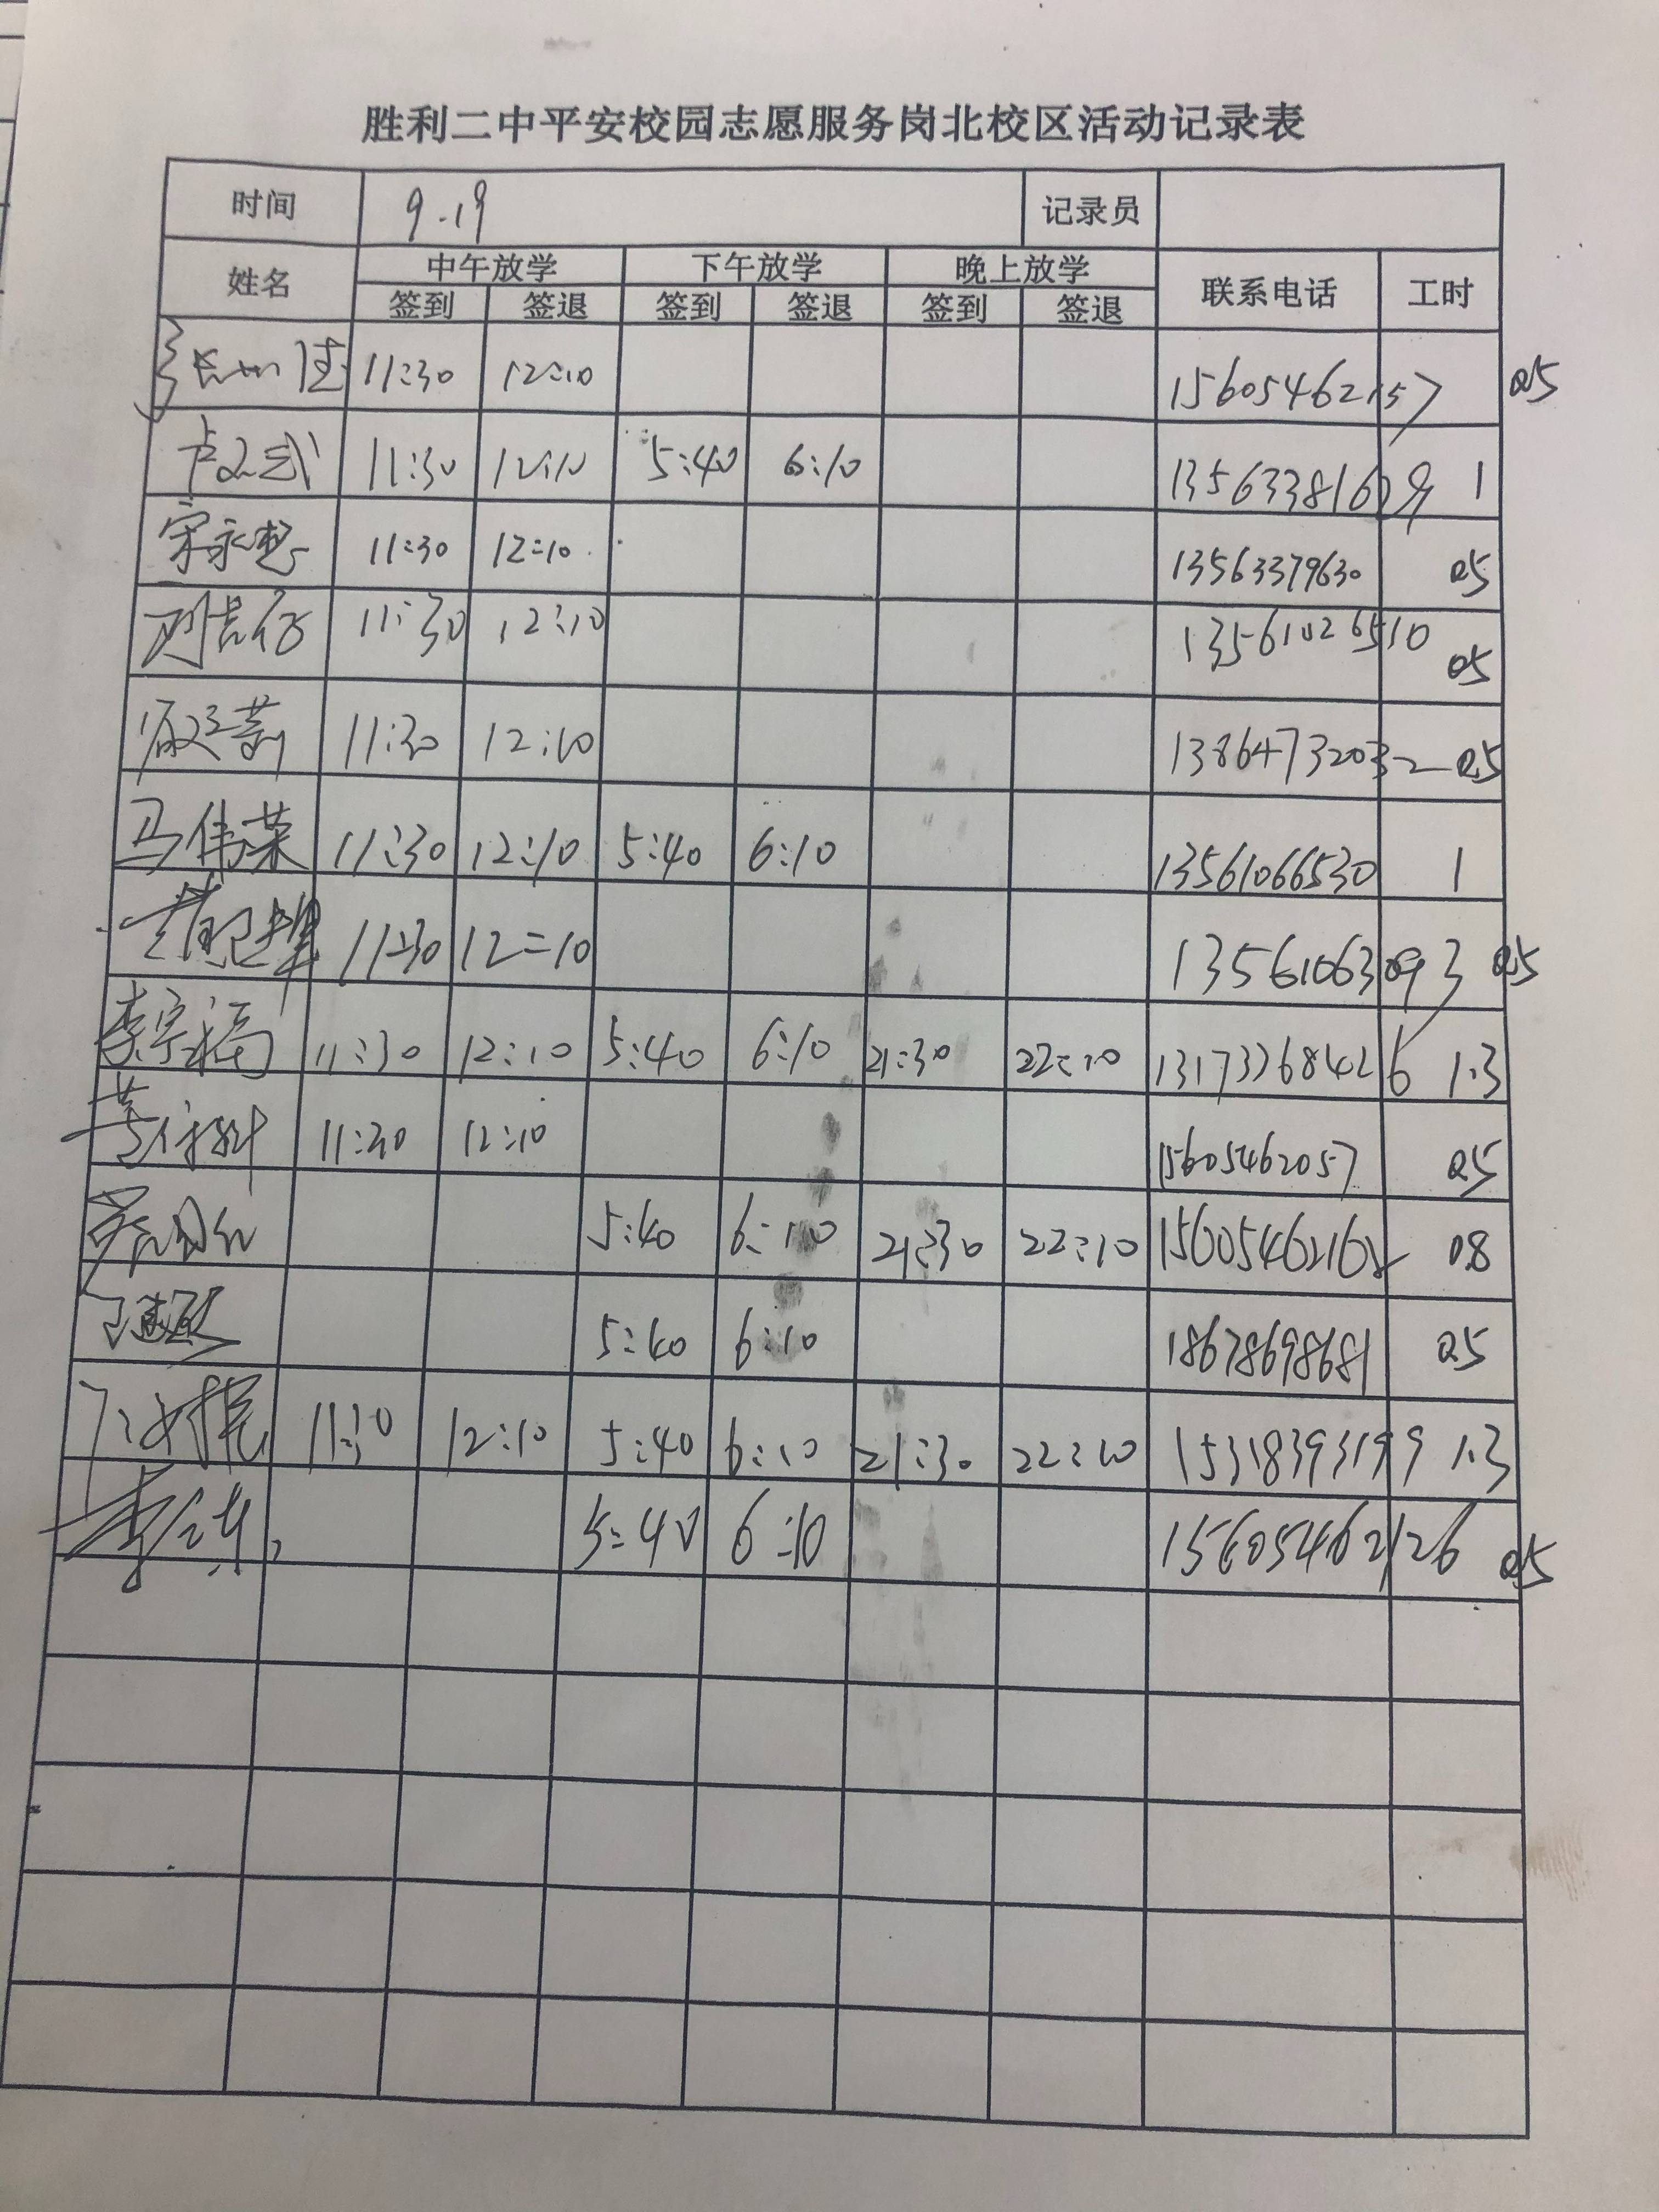 胜利二中平安校园志愿服务岗北校区活动记录表
时间 9.19 记录员
姓名 中午放学 下午放学 晚上放学 联系电话 工时
签到 签退 签到 签退 签到 签退
11:30 12:10 15605462157 0.5
11:30 12:10 5:40 6:10 1
宋永 11:30 12:10 13563379630 0.5
11:30 12:10 13561026510 0.5
11:30 12:10 13864732032 0.5
马伟荣 11:30 12:10 5:40 6:10 13561066530 1
11:30 12:10 13561063093 0.5
李宗福 11:30 12:10 5:40 6:10 21:30 22:10 13173368426 1.3
11:30 12:10 15605462057 0.5
5:40 6:10 21:30 22:10 0.8
5:40 6:10 18678698681 0.5
11:30 12:10 5:40 6:10 21:30 22:10 15318393199 1.3
5:40 6:10 15605462126 0.5